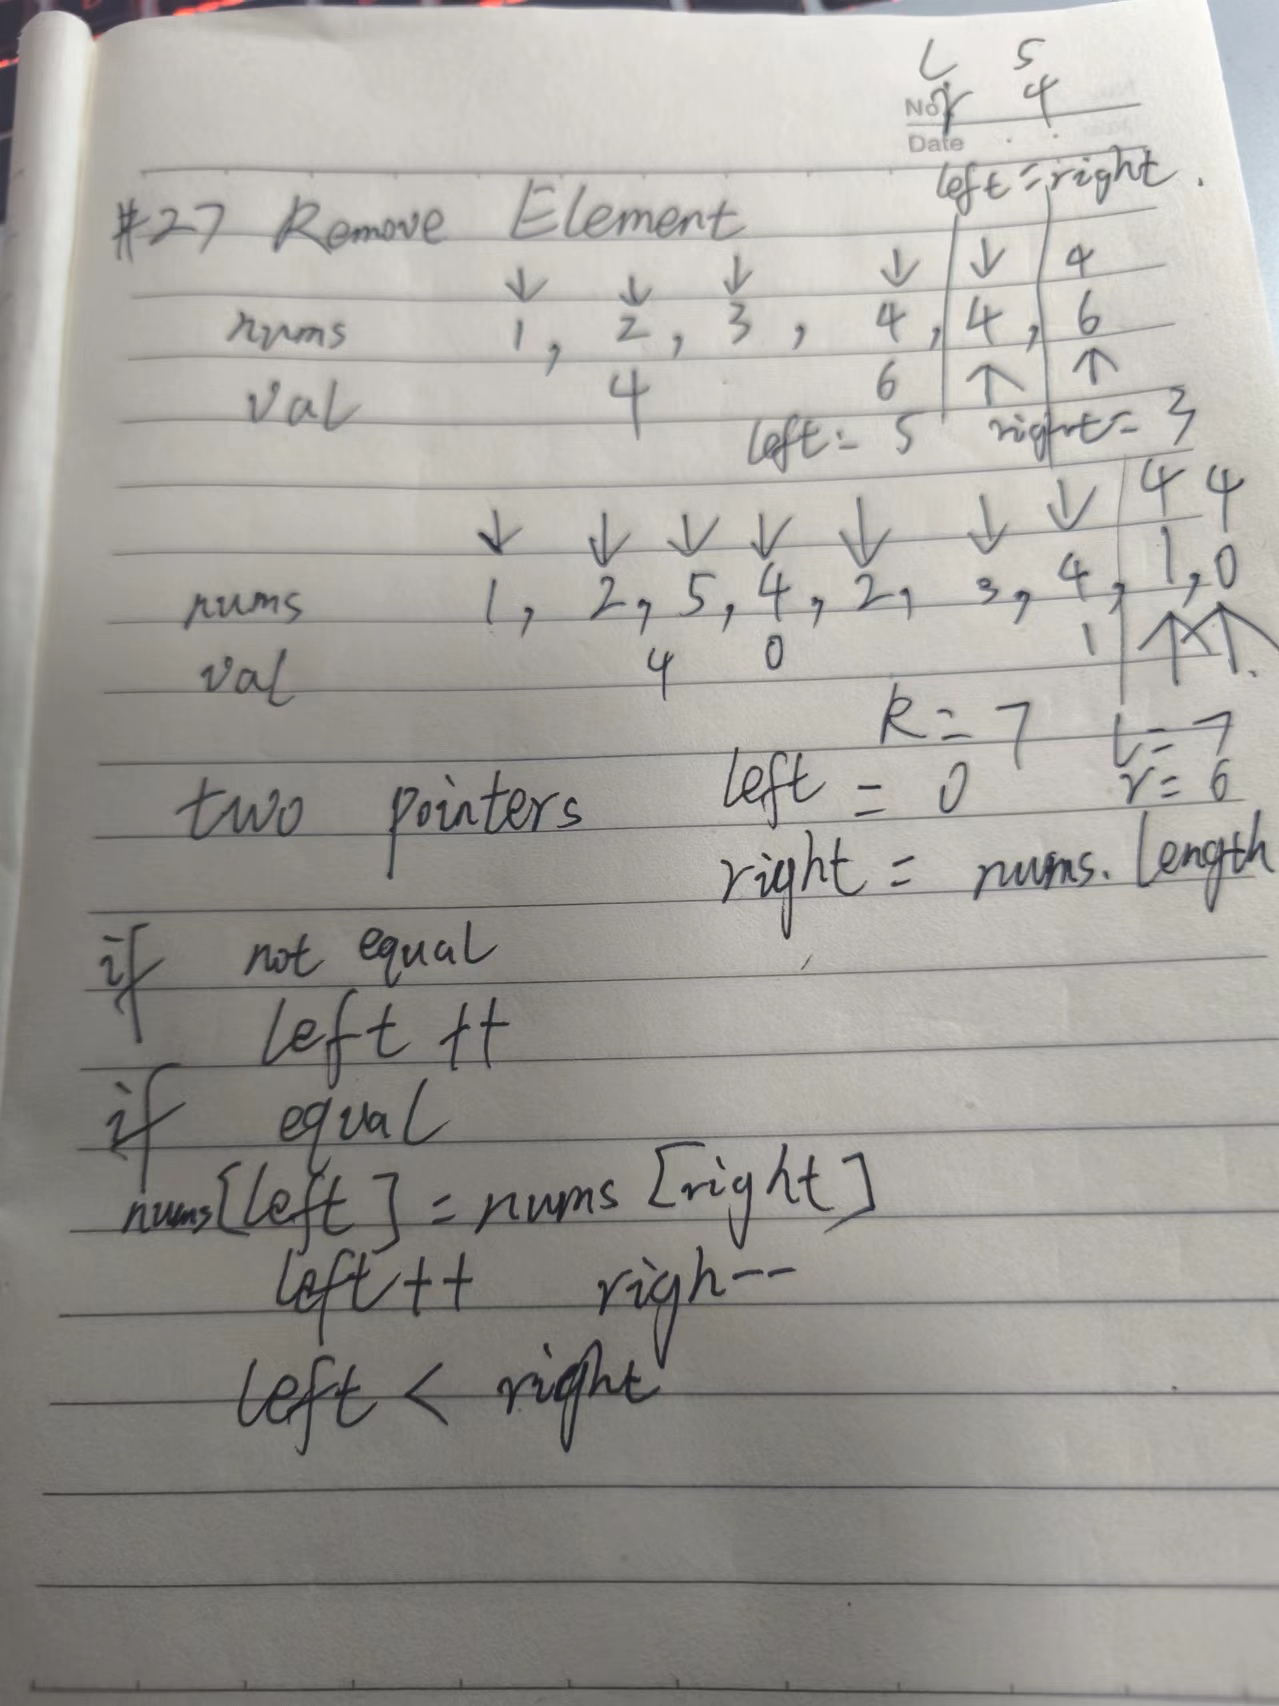 L 5
No. r 4
Date
left = right.
#27 Remove Element
↓ ↓ ↓ ↓ ↓ 4
nums 1, 2, 3, 4, 4, 6
val 4 6 ↑ ↑
left = 5 right = 3
↓ ↓ ↓ ↓ ↓ ↓ ↓ 4 4
nums 1, 2, 5, 4, 2, 3, 4, 1, 0
val 4 0 1 ↑ ↑
R = 7 L = 7
two pointers left = 0 r = 6
right = nums.length
if not equal
left ++
if equal
nums[left] = nums [right]
left ++ righ--
left < right